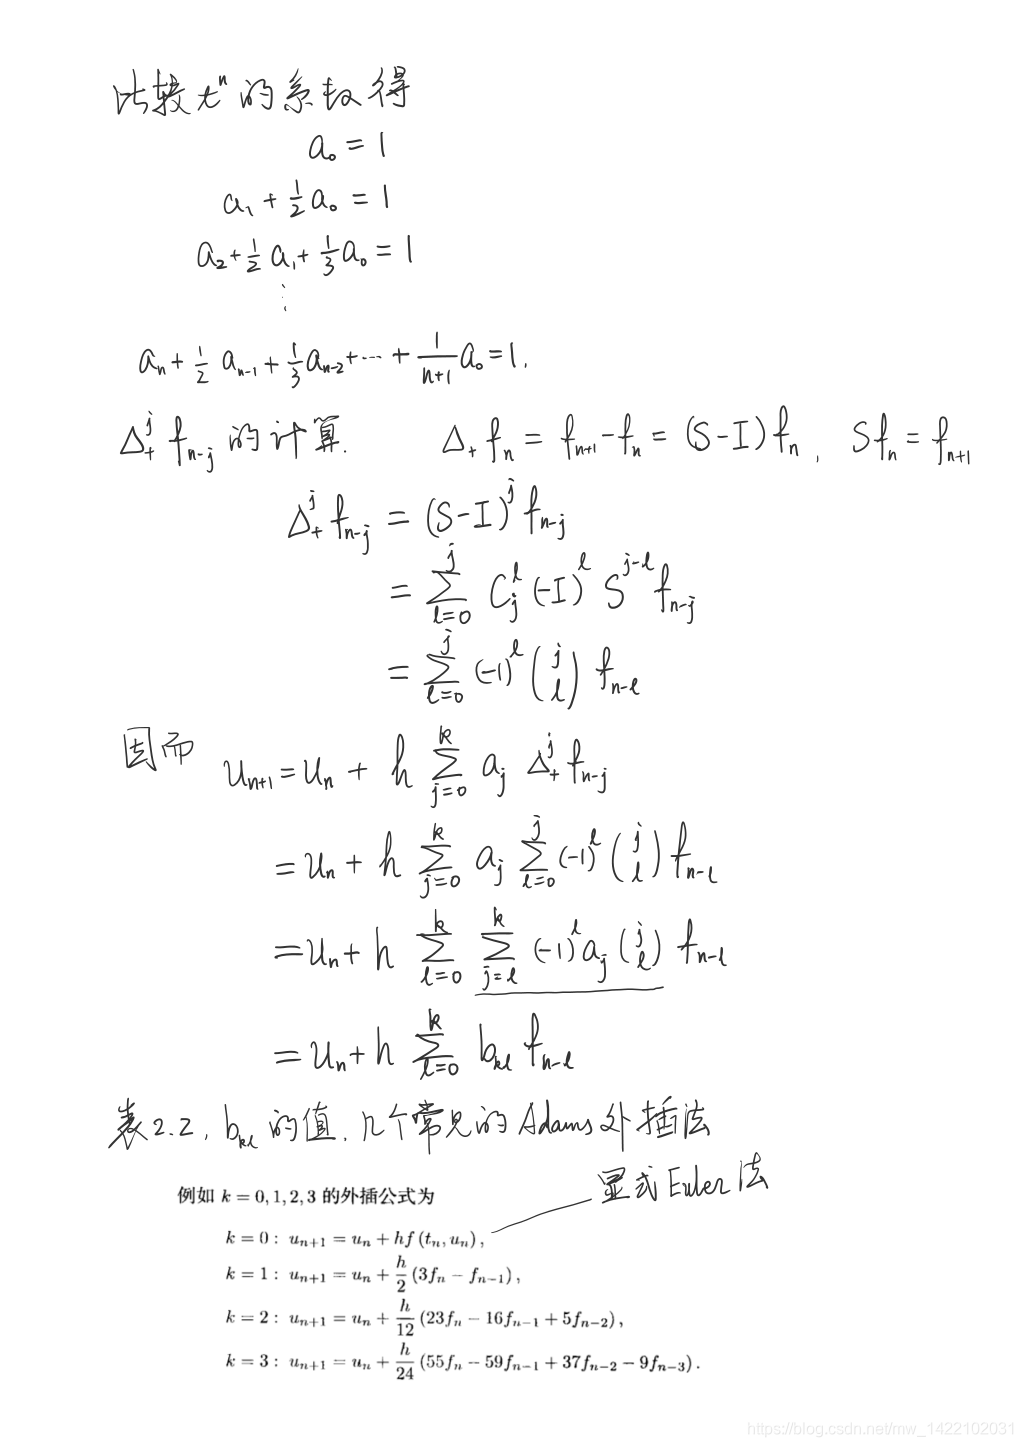 比较 tⁿ 的系数得
a₀ = 1
a₁ + 1/2 a₀ = 1
a₂ + 1/2 a₁ + 1/3 a₀ = 1
⋮
aₙ + 1/2 aₙ₋₁ + 1/3 aₙ₋₂ + ⋯ + 1/(n+1) a₀ = 1.
Δ₊^j f_{n-j} 的计算. Δ₊ fₙ = f_{n+1} - fₙ = (S-I) fₙ, S fₙ = f_{n+1}
Δ₊^j f_{n-j} = (S-I)^j f_{n-j}
= ∑_{l=0}^{j} C_j^l (-I)^l S^{j-l} f_{n-j}
= ∑_{l=0}^{j} (-1)^l (j l) f_{n-l}
因而 u_{n+1} = uₙ + h ∑_{j=0}^{k} a_j Δ₊^j f_{n-j}
= uₙ + h ∑_{j=0}^{k} a_j ∑_{l=0}^{j} (-1)^l (j l) f_{n-l}
= uₙ + h ∑_{l=0}^{k} ∑_{j=l}^{k} (-1)^l a_j (j l) f_{n-l}
= uₙ + h ∑_{l=0}^{k} b_{kl} f_{n-l}
表2.2, b_{kl} 的值, 几个常见的 Adams 外插法
显式 Euler 法
例如 k = 0, 1, 2, 3 的外插公式为
k = 0 : u_{n+1} = u_n + hf (t_n, u_n),
k = 1 : u_{n+1} = u_n + h/2 (3f_n − f_{n−1}),
k = 2 : u_{n+1} = u_n + h/12 (23f_n − 16f_{n−1} + 5f_{n−2}),
k = 3 : u_{n+1} = u_n + h/24 (55f_n − 59f_{n−1} + 37f_{n−2} − 9f_{n−3}).
https://blog.csdn.net/mw_1422102031